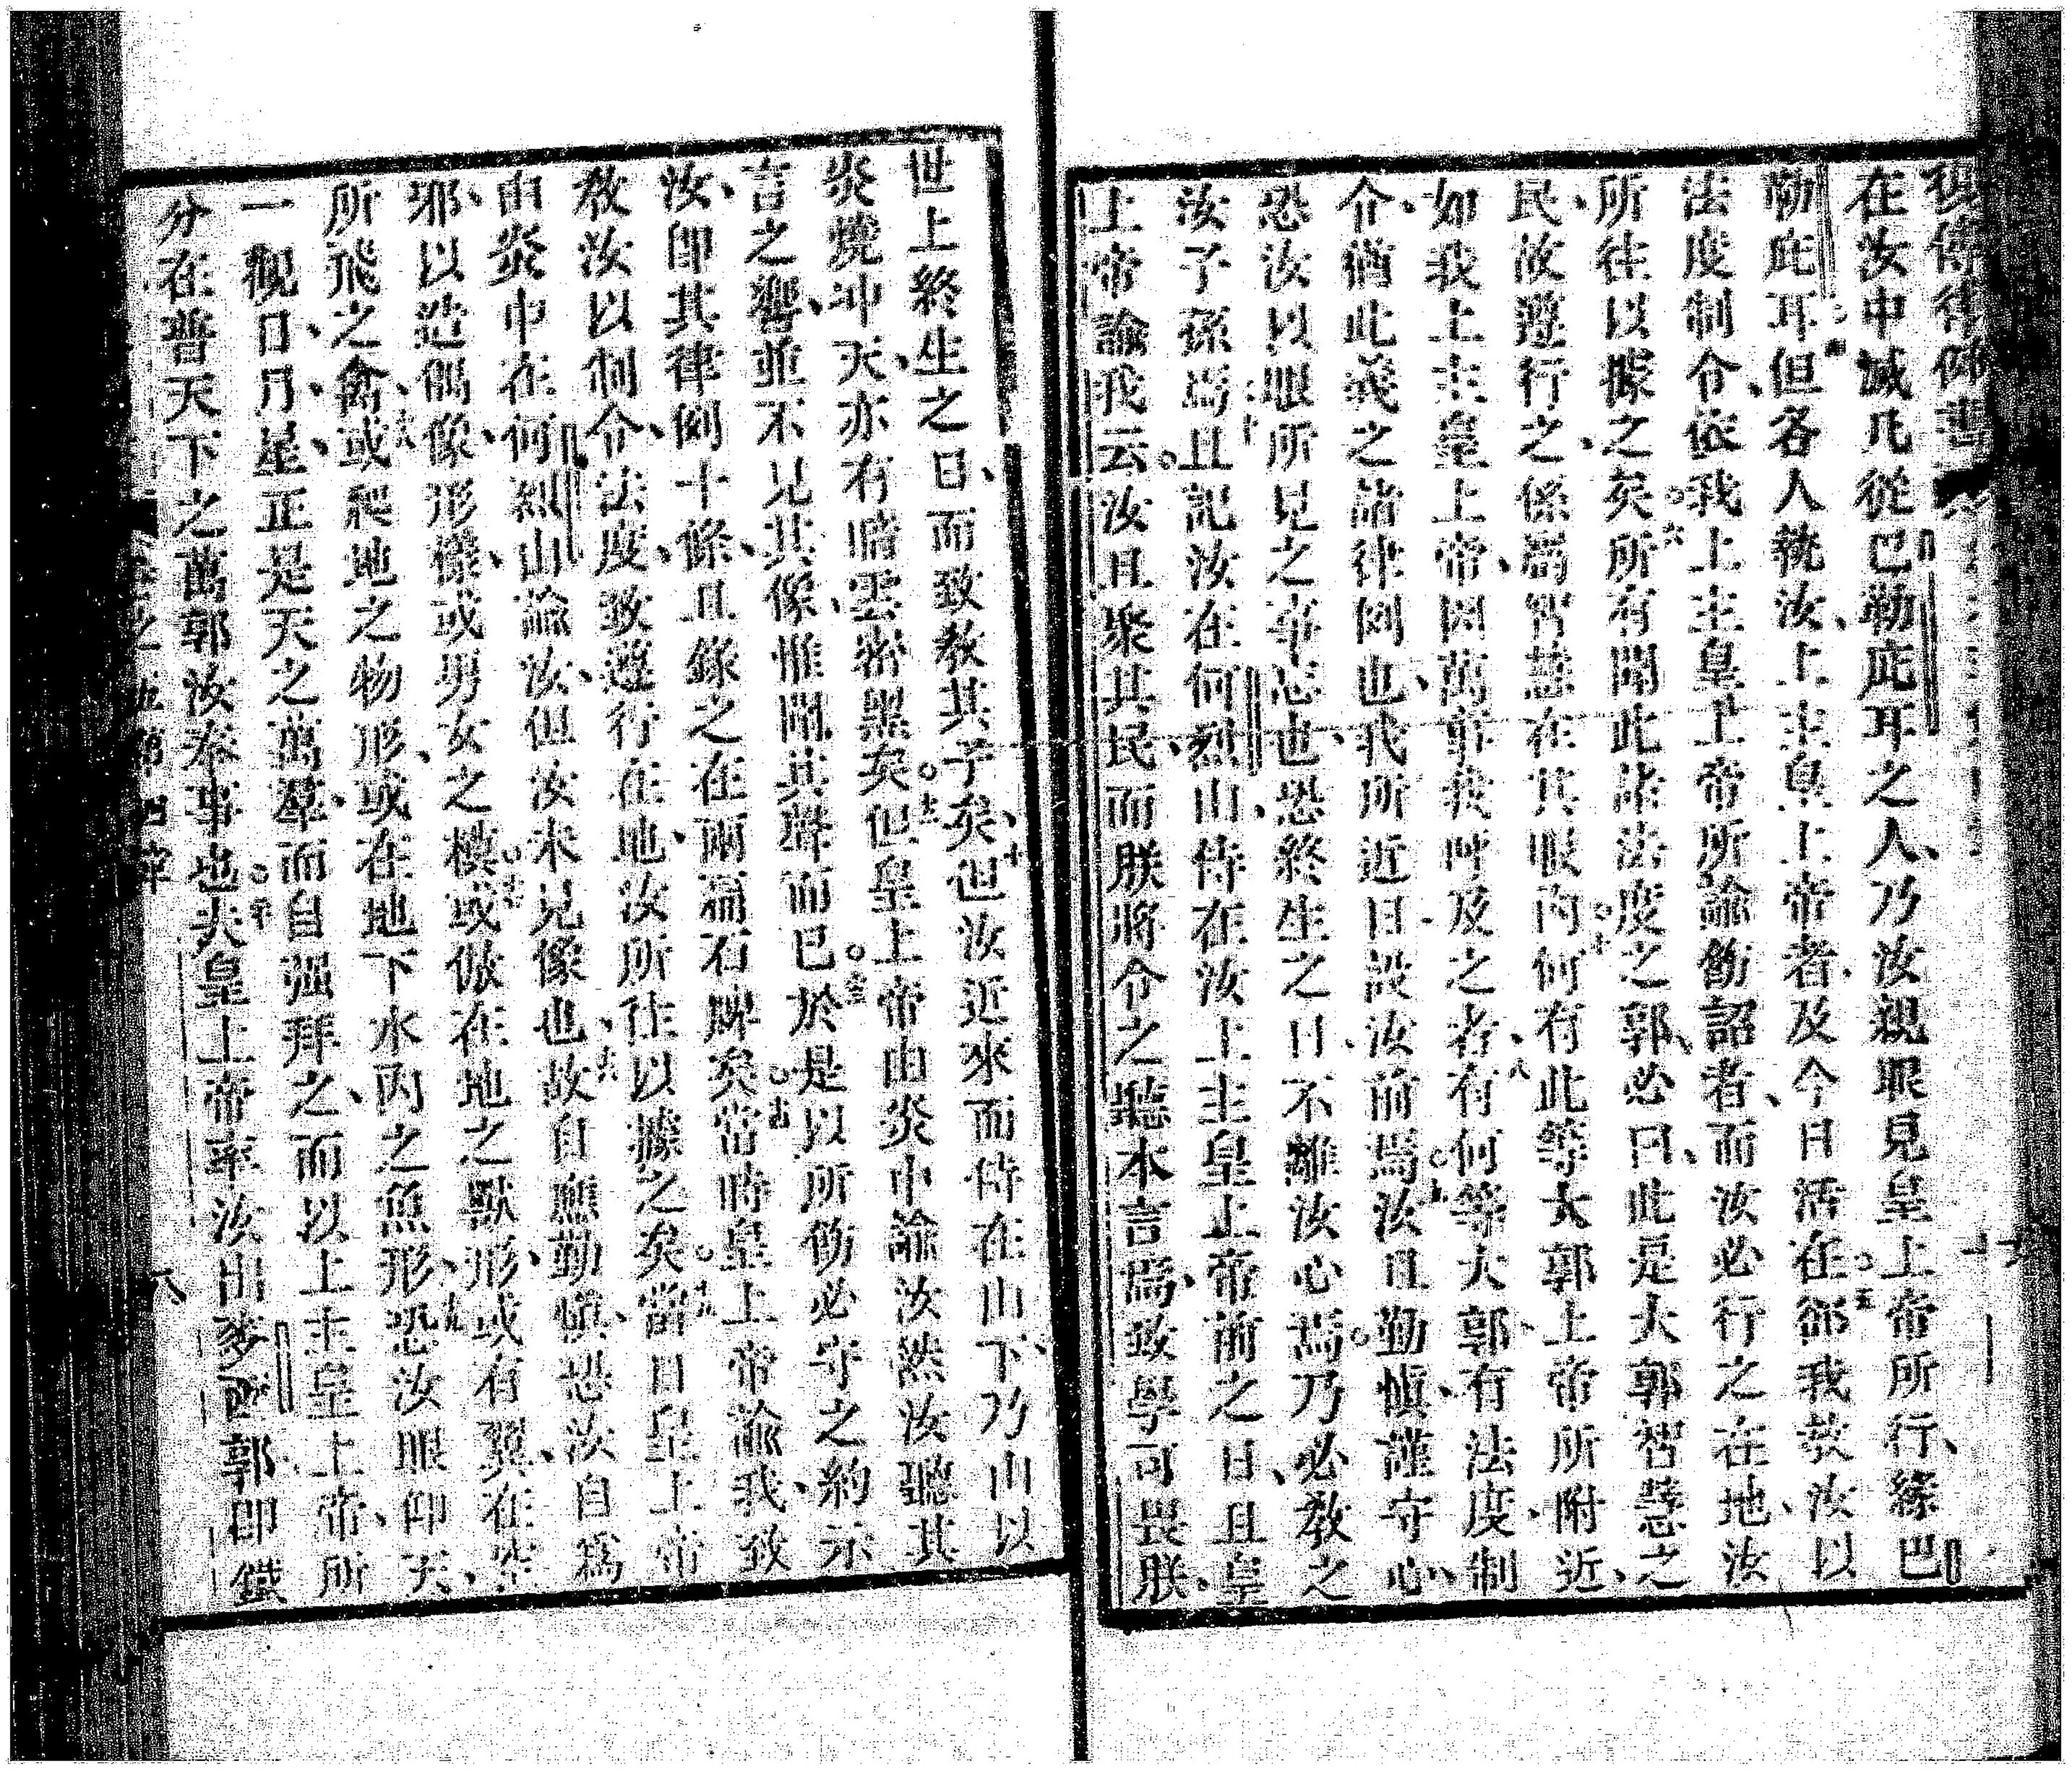 復傳律例書
在汝中滅凡從巴勒庇耳之人、乃汝親眼見皇上帝所行、緣巴
勒庇耳、四但各人執汝、上主皇上帝者、及今日活在、五邰我教汝以
法度制令、依我上主皇上帝所諭飭詔者、而汝必行之在地、汝
所往以據之矣。六所有聞此諸法度之郭、必曰、此是大郭智慧之
民、汝遵行之、係爲智慧在其眼內。七何有此等大郭上帝所附近、
如我上主皇上帝、因萬事我呼及之者、八有何等大郭有法度、制
令、猶此義之諸律例也、我所近日設汝前焉。九汝且勤慎、謹守心、
恐汝以眼所見之事忘也、恐終生之日、不離汝心焉。乃必教之
汝子孫焉。十且記汝在何烈山、侍在汝上主皇上帝前之日、且皇
上帝諭我云。汝且聚其民、而朕將令之聽本言焉、致學可畏朕。
世上終生之日、而致教其子矣、十一但汝近來而侍在山下、乃山以
炎燒冲天、亦有暗雲密黑矣。十二但皇上帝由炎中諭汝然汝聽其
言之響、並不見其像、惟聞其聲而已。十三於是以所飭必守之約示
汝、卽其律例十條、且錄之在兩扁石牌矣。十四當時皇上帝諭我、致
教汝以制令、法度、致遵行在地、汝所往以據之矣。十五當日皇上帝
由炎中在何烈山諭汝、但汝未見像也、十六故自應勤慎、恐汝自爲
邪、以造偶像、形樣、或男女之模。十七或倣在地之獸形、或有翼、在空
所飛之禽、十八或爬地之物形、或在地下水內之魚形、十九恐汝眼仰天、
一觀日、月、星、正是天之萬羣、而自强拜之、而以上主皇上帝、所
分在普天下之萬郭、汝奉事也。二十夫皇上帝率汝出麥西郭卽鐵